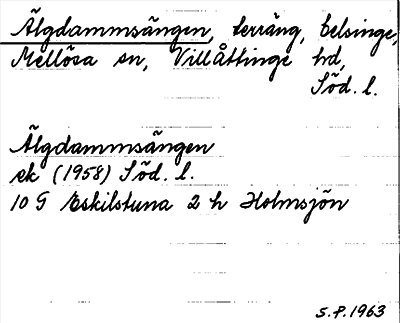 Älgdammsängen, terräng, Celsinge,
Mellösa sn, Villåttinge hd,
Söd. l.
Älgdammsängen
ek (1958) Söd. l.
10 G Eskilstuna 2 h Holmsjön
S.P. 1963